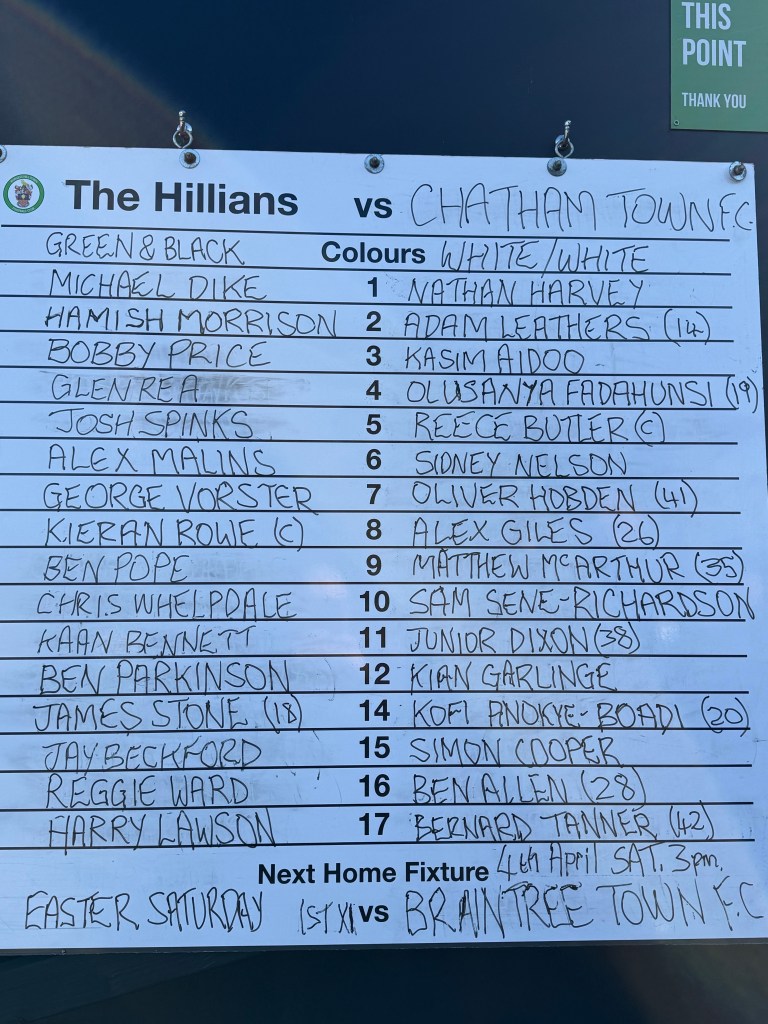 THIS
POINT
THANK YOU
The Hillians vs CHATHAM TOWN F.C
GREEN & BLACK Colours WHITE/WHITE
MICHAEL DIKE 1 NATHAN HARVEY
HAMISH MORRISON 2 ADAM LEATHERS (14)
BOBBY PRICE 3 KASIM AIDOO
GLEN REA 4 OLUSANYA FADAHUNSI (19)
JOSH SPINKS 5 REECE BUTLER (C)
ALEX MALINS 6 SIDNEY NELSON
GEORGE VORSTER 7 OLIVER HOBDEN (41)
KIERAN ROWE (C) 8 ALEX GILES (26)
BEN POPE 9 MATTHEW McARTHUR (35)
CHRIS WHELPDALE 10 SAM SENE-RICHARDSON
KAAN BENNETT 11 JUNIOR DIXON (38)
BEN PARKINSON 12 KIAN GARLINGE
JAMES STONE (18) 14 KOFI ANOKYE-BOADI (20)
JAY BECKFORD 15 SIMON COOPER
REGGIE WARD 16 BEN ALLEN (28)
HARRY LAWSON 17 BERNARD TANNER (42)
Next Home Fixture 4th April SAT. 3pm.
EASTER SATURDAY 1ST XI vs BRAINTREE TOWN F.C